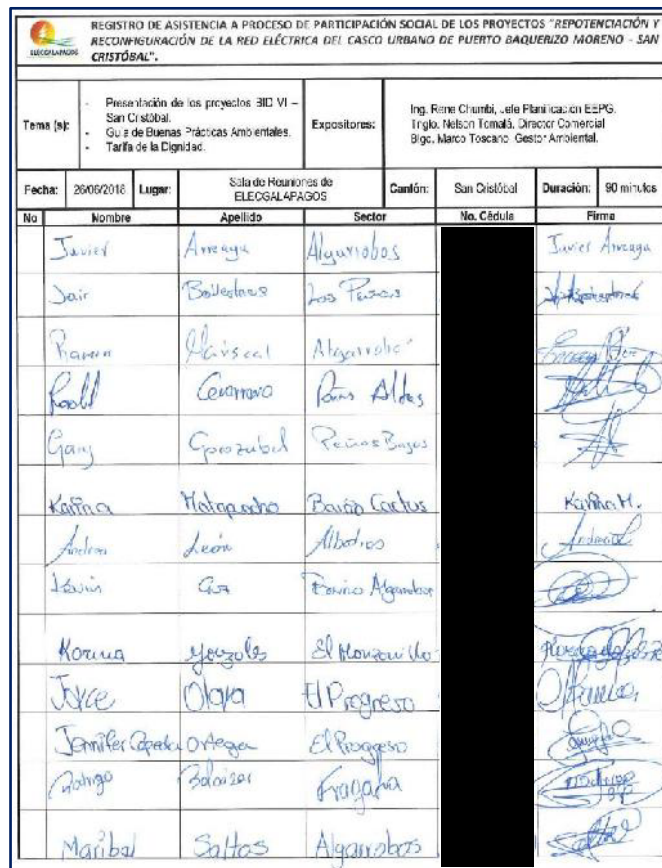 REGISTRO DE ASISTENCIA A PROCESO DE PARTICIPACIÓN SOCIAL DE LOS PROYECTOS "REPOTENCIACIÓN Y
RECONFIGURACIÓN DE LA RED ELÉCTRICA DEL CASCO URBANO DE PUERTO BAQUERIZO MORENO - SAN
CRISTÓBAL".
ELECGALAPAGOS
Tema (s):
- Presentación de los proyectos BID VI –
San Cristóbal.
- Guía de Buenas Prácticas Ambientales.
- Tarifa de la Dignidad.
Expositores:
Ing. Rene Chumbi, Jefe Planificación EEPG.
Tnglo. Nelson Tomalá. Director Comercial
Blgo. Marco Toscano. Gestor Ambiental.
Fecha: 26/06/2018 Lugar: Sala de Reuniones de ELECGALAPAGOS Cantón: San Cristóbal Duración: 90 minutos
No Nombre Apellido Sector No. Cédula Firma
Javier Arreaga Algarrobos Javier Arreaga
Jair Ballesteros Las
Mariscal
Peñas Altas
Gorozabel Peñas Bajas
Karina Barrio Cactus Karina M.
Andrea León Albatros
Kevin Barrio Algarrobos
Korina Gonzales El Manzanillo
Joyce Olaya El Progreso
Jennifer Ortega El Progreso
Rodrigo Fragata
Maribel Saltos Algarrobos